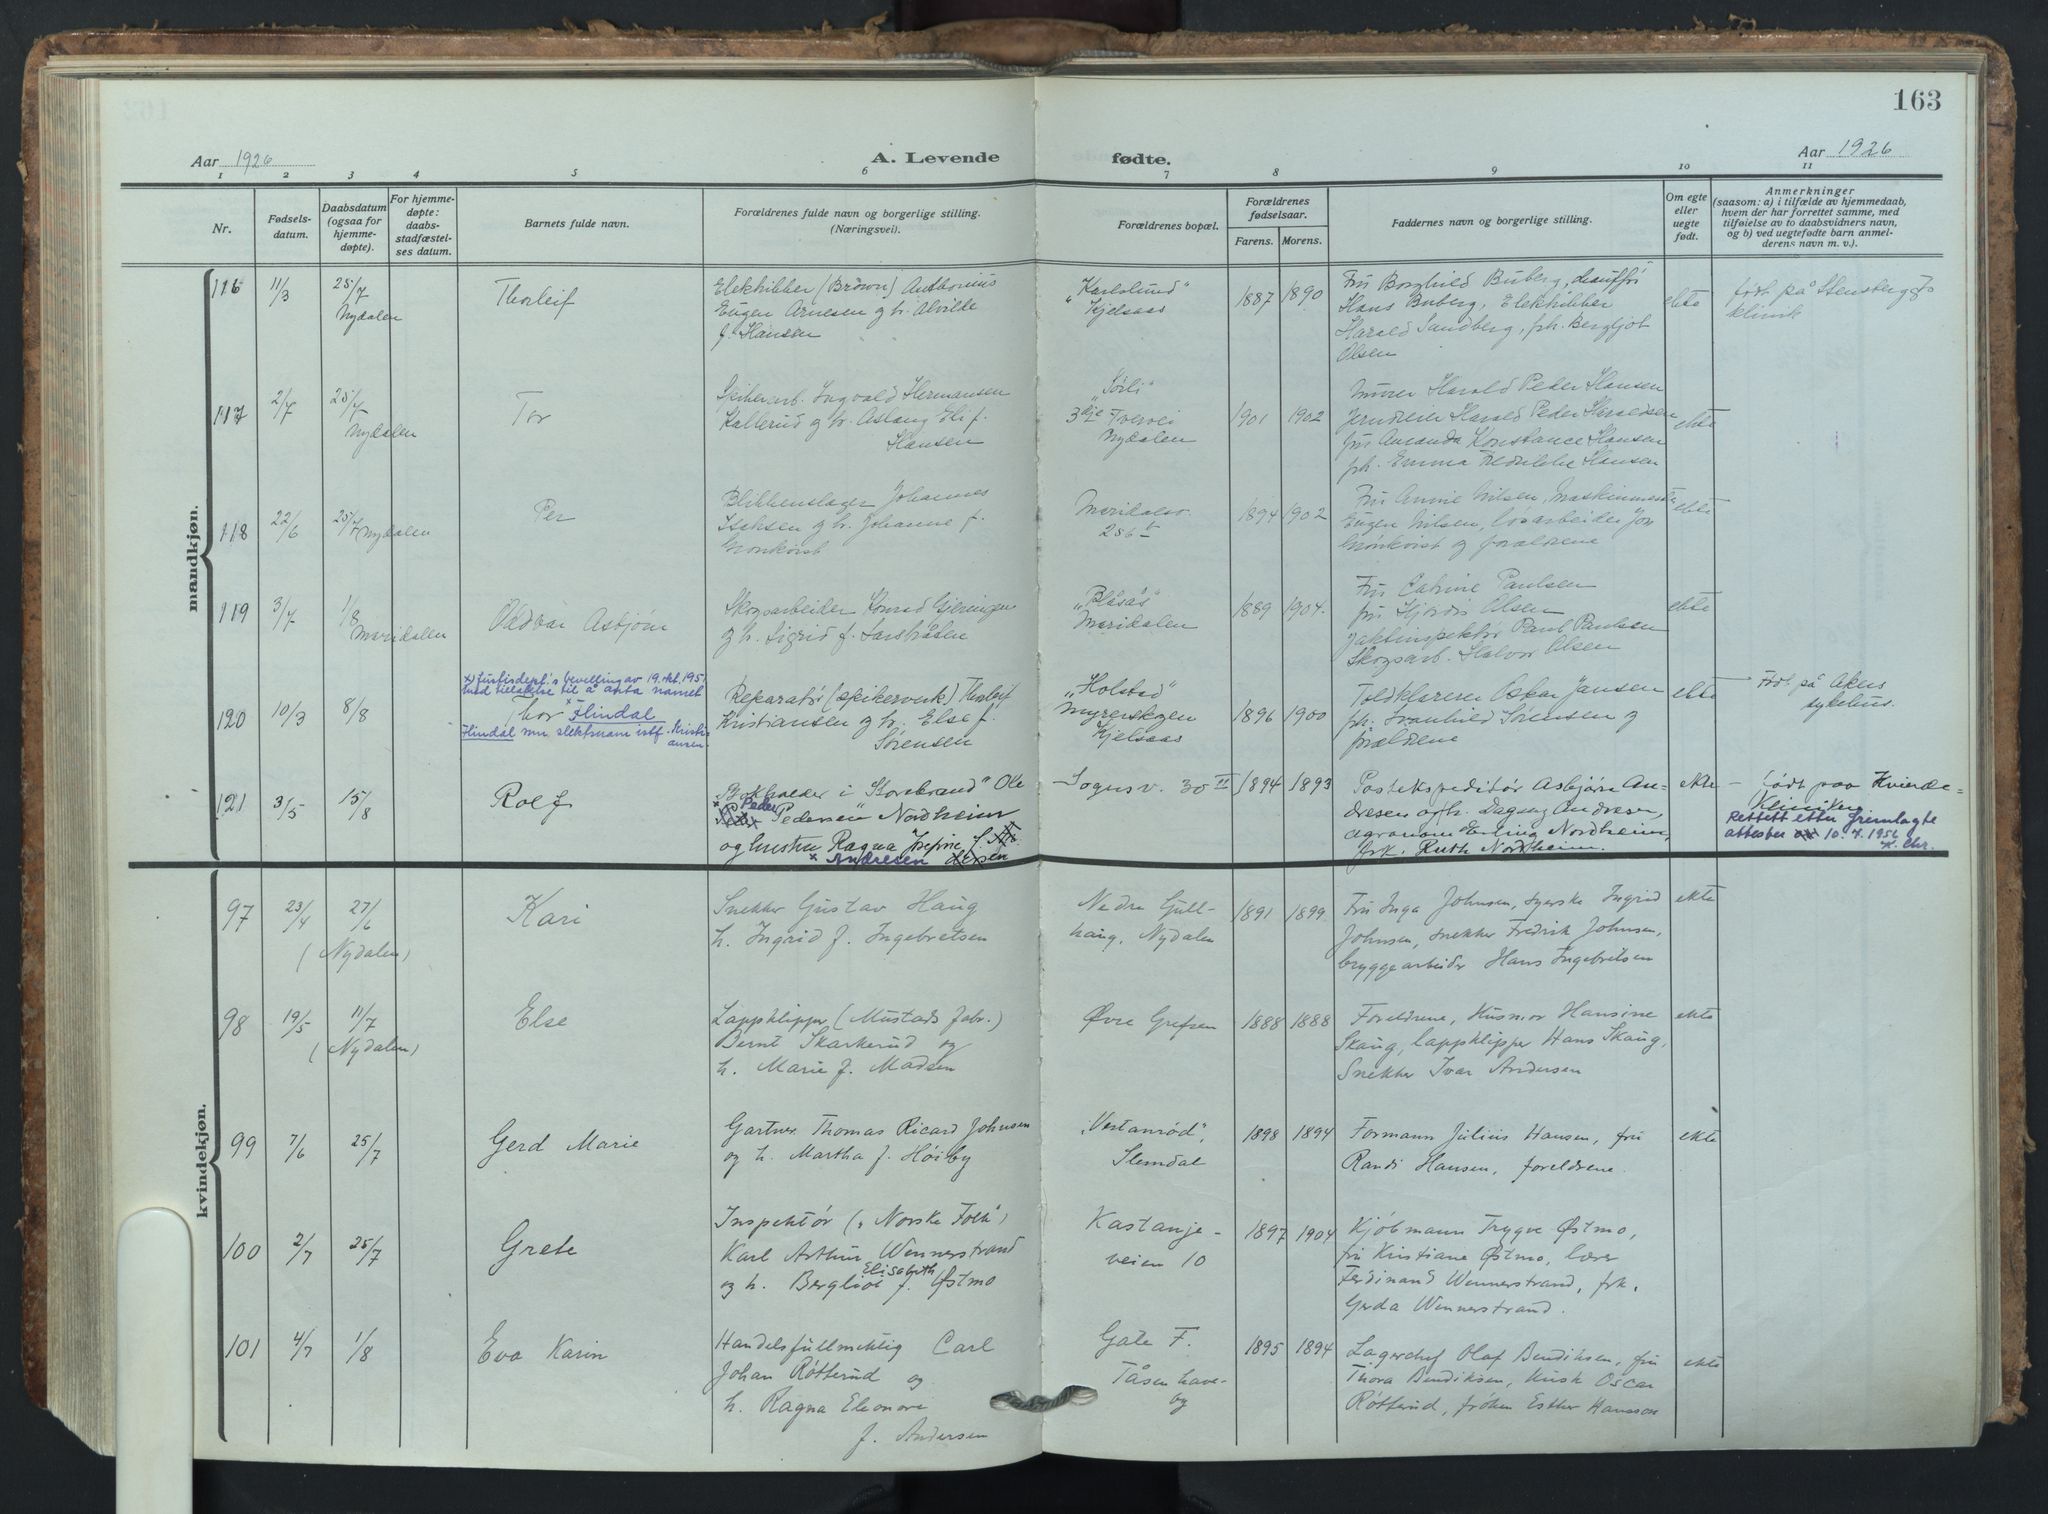 163
Aar 1926
A. Levende fødte.
Aar 1926
1 2 3 4 5 6 7 8 9 10 11
Nr.
Fødsels-
datum.
Daabsdatum
(ogsaa for
hjemme-
døpte).
For hjemme-
døpte:
daabs-
stadfæstel-
ses datum.
Barnets fulde navn.
Forældrenes fulde navn og borgerlige stilling.
(Næringsvei).
Forældrenes bopæl.
Forældrenes
fødselsaar.
Farens. Morens.
Faddernes navn og borgerlige stilling.
Om egte
eller
uegte
født.
Anmerkninger
(saasom: a) i tilfælde av hjemmedaab,
hvem der har forrettet samme, med
tilføielse av to daabsvidners navn,
og b) ved uegtefødte barn anmel-
derens navn m. v.).
mandkjøn.
116
11/3
25/7
Nydalen
Thorleif
Elektriker (Brown) Anthonius
Eugen Arnesen og h. Alvilde
f. Hansen
"Karlslund"
Kjelsaas
1887 1890
Fru Borghild Buberg,
Hans Buberg, Elektriker
Harald Sandberg, frk. Bergljot
Olsen
ekte
født på Stensberggt
klinik
117
2/7
25/7
Nydalen
Tor
Spikerarb. Ingvald Hermansen
Kallerud og h. Aslaug Eli f.
Hansen
"Sørli"
3dje Tvervei
Nydalen
1901 1902
Murer Harald Peder Hansen
Jerndreier Harald Peder Haraldsen
fru Amanda Konstance Hansen
frk. Emma Fredrikke Hansen
ekte
118
22/6
25/7 Nydalen
Per
Blikkenslager Johannes
Isaksen og h. Johanne f.
Grönkvist
Maridalsv.
256
1894 1902
Fru Annie Nilsen, Maskinmester
Eugen Nilsen, løsarbeider Jon
Grönkvist og forældrene
ekte
119
3/7
1/8
Maridalen
Oddvar Asbjørn
Skogsarbeider Konrad Gjerdingen
og h. Sigrid f. Larsbråten
"Blåsås"
Maridalen
1889 1904.
Fru Catrine Paulsen
fru Hjørdis Olsen
Jaktinspektør Paul Paulsen
Skogsarb. Halvor Olsen
ekte
120
10/3
8/8
x) Justisdept's bevilling av 19. okt. 1951
med tillatelse til å anta navnet
Thor x Flindal
Flindal som slektsnavn istf. Kristi-
ansen.
Reparatør (spikerverk) Thorleif
Kristiansen og h. Else f.
Sørensen
"Holstad"
Myrerskogen
Kjelsaas
1896 1900
Toldklarerer Oskar Jansen
frk. Svanhild Sørensen og
forældrene
ekte
Født på Akers
sykehus.
121
3/5
15/8
Rolf
Bokholder i "Storebrand" Ole
x Peder Pedersen Nordheim
og hustru Ragna Josefine f.
x Andresen
Sognsv. 30 II
1894 1893
Postekspeditør Asbjørn An-
dresen og fr. Dagny Andresen,
agronom Erling Nordheim,
frk. Ruth Nordheim.
ekte
født paa Kvinde-
Klinikken.
Rettet etter fremlagte
attester 10.7.1956
K. Chr.
kvindekjøn.
97
23/4
27/6
(Nydalen)
Kari
Snekker Gustav Haug
h. Ingrid f. Ingebretsen
Nedre Gull-
haug, Nydalen
1891 1899
Fru Inga Johnsen, syerske Ingrid
Johnsen, snekker Fredrik Johnsen,
bryggearbeider Hans Ingebretsen
ekte
98
19/5
11/7
(Nydalen)
Else
Lappklipper (Mustads fabr.)
Bernt Skarkerud og
h. Marie f. Madsen
Øvre Grefsen
1888 1888
Foreldrene, Husmor Hansine
Skaug, lappklipper Hans Skaug,
Snekker Ivar Andersen
ekte
99
7/6
25/7
Gerd Marie
Gartner Thomas Ricard Johnsen
og h. Martha f. Höiby
"Vestanrød",
Slemdal
1898 1894
Formann Julius Hansen, fru
Randi Hansen, foreldrene.
ekte
100
2/7
25/7
Grete
Inspektør ("Norske Folk")
Karl Arthur Wennerstrand
og h. Bergliot Elisabeth f. Østmo
Kastanje-
veien 10
1897 1904
Kjøbmann Trygve Østmo,
fru Kristiane Østmo, lærer
Ferdinand Wennerstrand, frk.
Gerda Wennerstrand.
101
4/7
1/8
Eva Karin
Handelsfullmektig Carl
Johan Røtterud og
h. Ragna Eleonore
f. Andersen
Gate F.
Tåsen have-
by
1895 1894
Lagerchef Olaf Bendiksen, fru
Thora Bendiksen, Oscar
Røtterud, frøken Esther Hansson
ekte